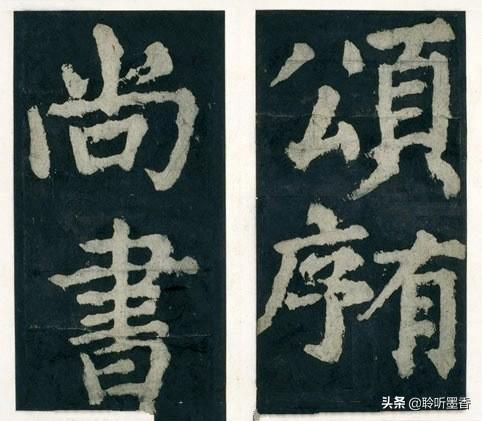 頌有序
尚書
头条 @聆听墨香